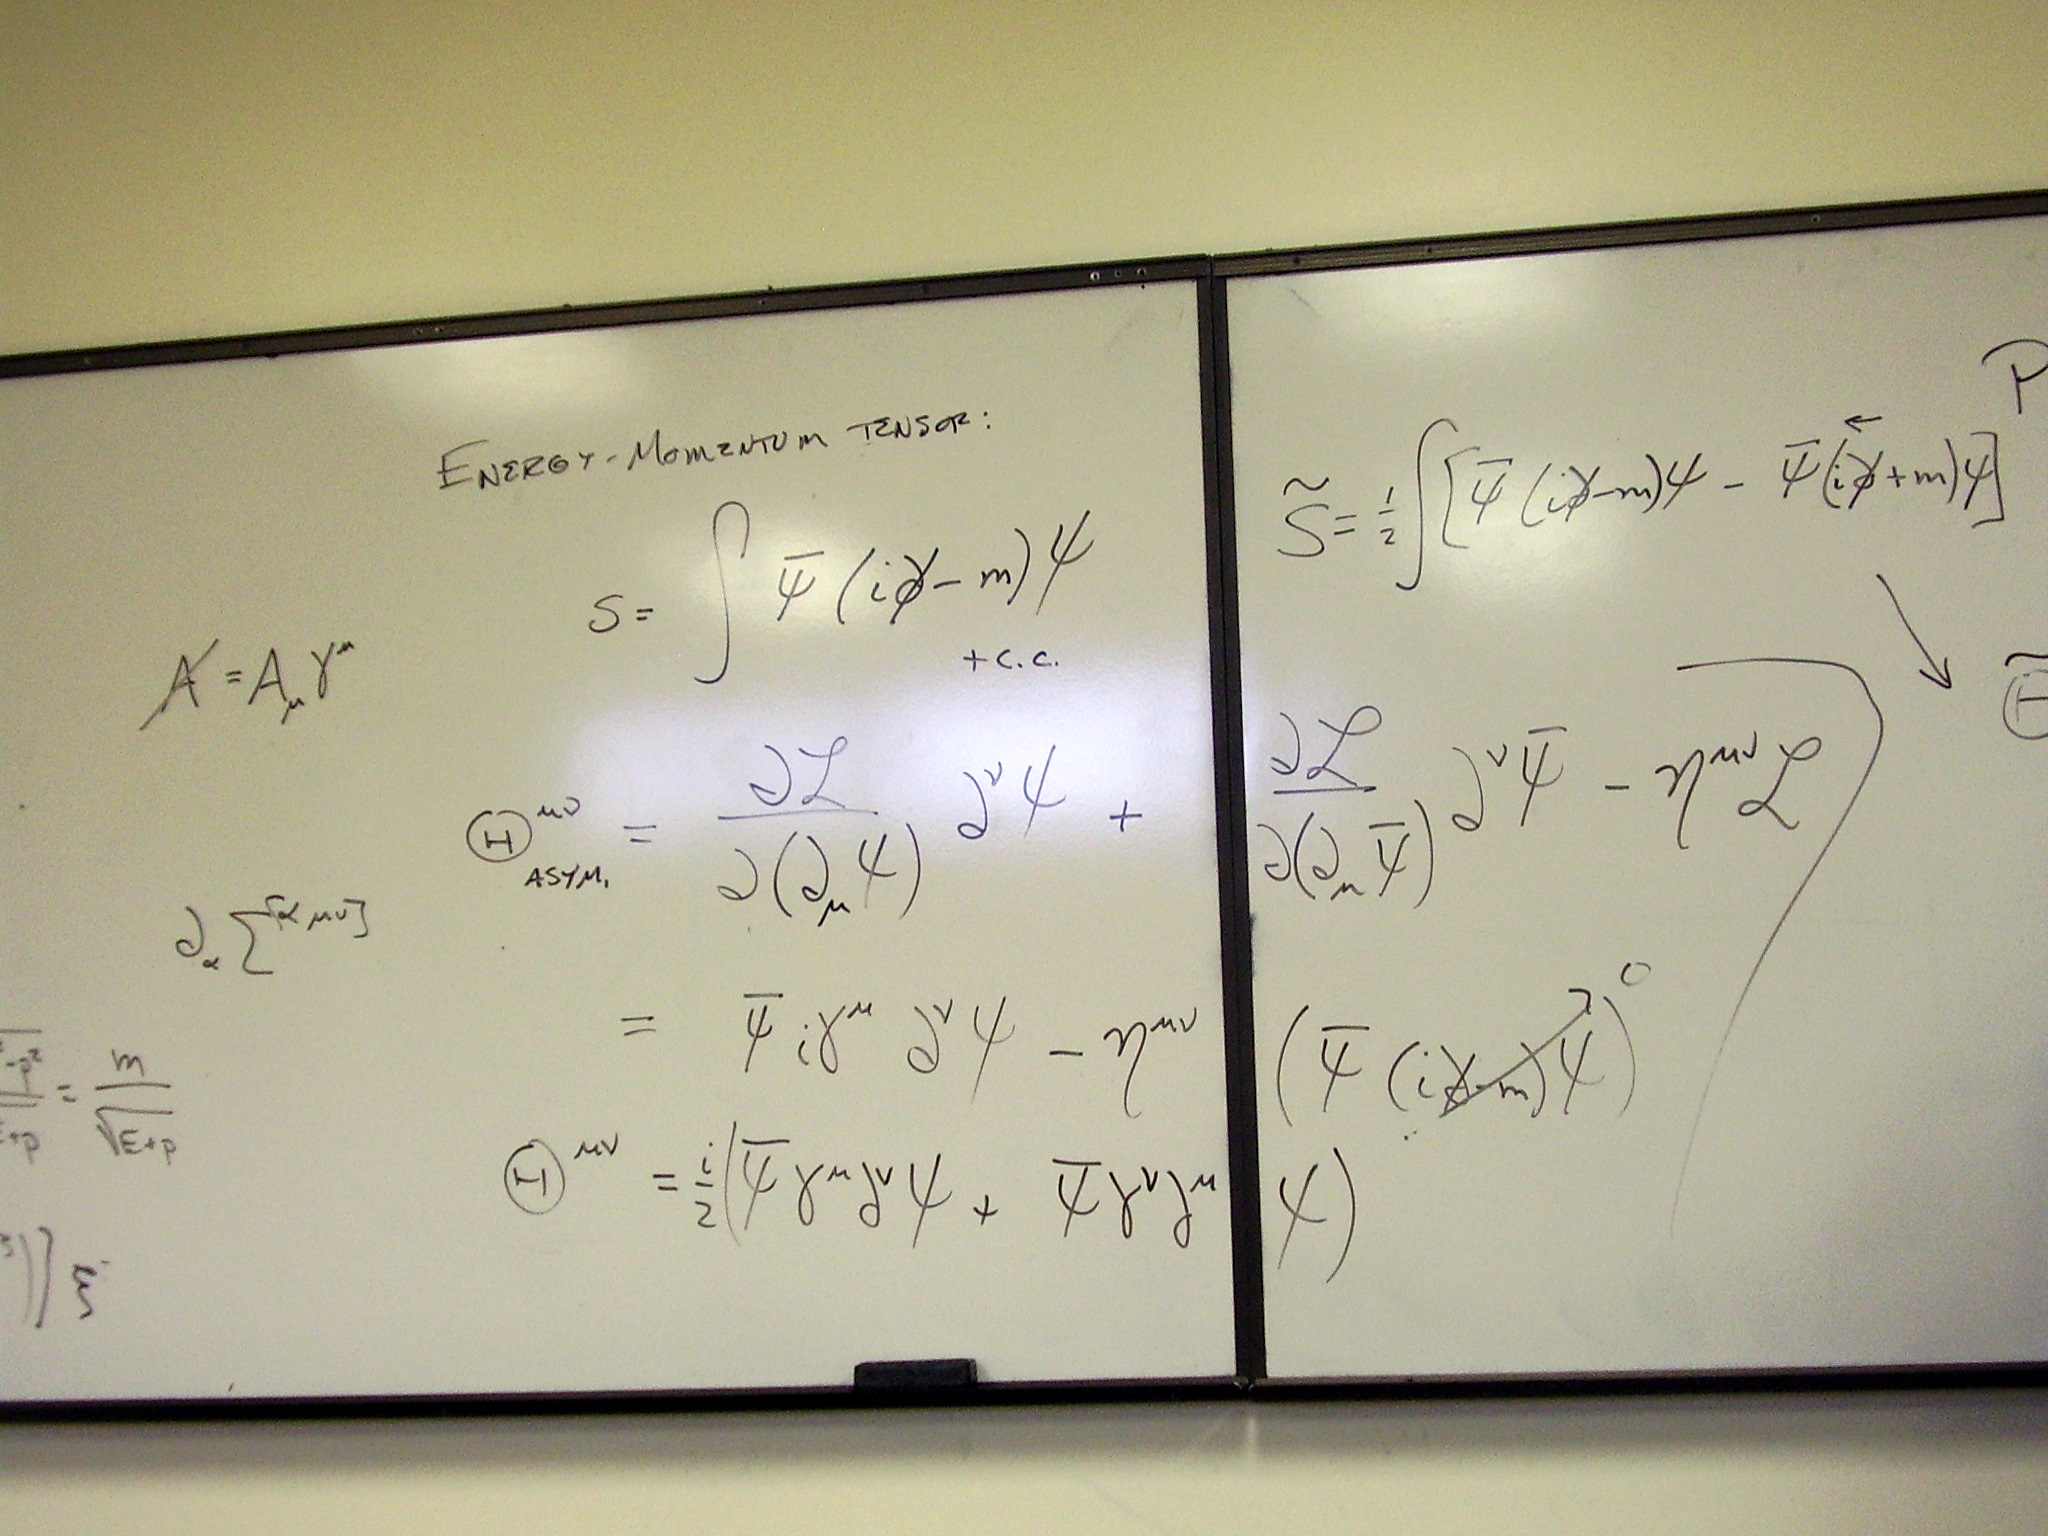 ENERGY-MOMENTUM TENSOR:
S = ∫ ψ̄ (i∂̸ - m) ψ
+ c.c.
A̸ = A_μ γ^μ
Θ^{μν}_{ASYM.} = ∂ℒ/∂(∂_μ ψ) ∂^ν ψ + ∂ℒ/∂(∂_μ ψ̄) ∂^ν ψ̄ - η^{μν} ℒ
∂_α Σ^{[αμν]}
= ψ̄ iγ^μ ∂^ν ψ - η^{μν} (ψ̄ (i∂̸ - m) ψ) 0
= m/√(E+p)
Θ^{μν} = i/2 (ψ̄ γ^μ ∂^ν ψ + ψ̄ γ^ν ∂^μ ψ)
)] ξ
P
S̃ = 1/2 ∫ [ψ̄ (i∂̸ - m) ψ - ψ̄ (i∂̸← + m) ψ]